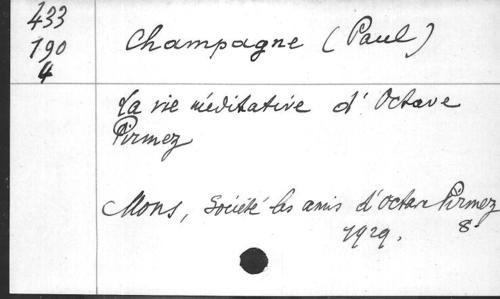 433
190
4
Champagne (Paul)
La vie méditative d'Octave
Pirmez
Mons, Société les amis d'Octave Pirmez
1929. 8°